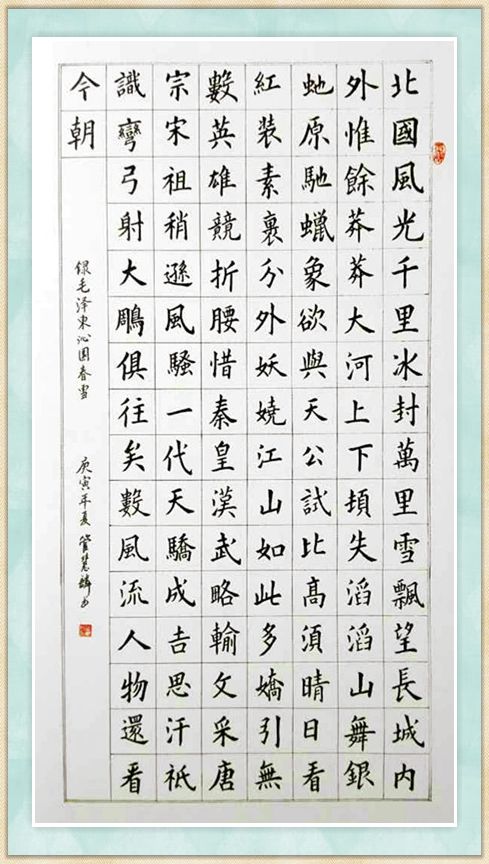 北國風光千里冰封萬里雪飄望長城内
外惟餘莽莽大河上下頓失滔滔山舞銀
虵原馳蠟象欲與天公試比高須晴日看
紅裝素裹分外妖嬈江山如此多嬌引無
數英雄競折腰惜秦皇漢武略輸文采唐
宗宋祖稍遜風騷一代天驕成吉思汗祗
識彎弓射大鵰俱往矣數風流人物還看
今朝
録毛泽東沁园春雪
庚寅年夏管慧